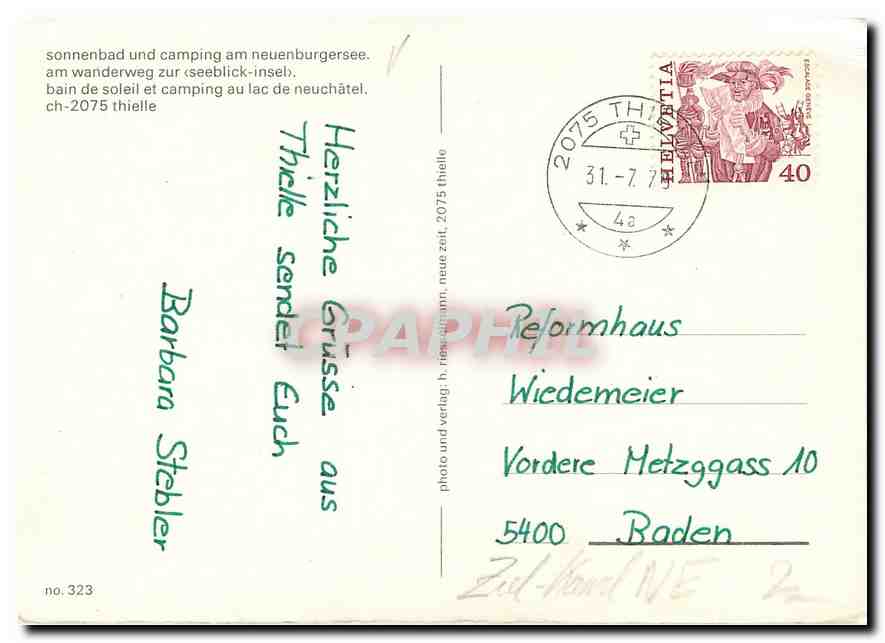 sonnenbad und camping am neuenburgersee.
am wanderweg zur ‹seeblick-insel›.
bain de soleil et camping au lac de neuchâtel.
ch-2075 thielle
Herzliche Grüsse aus
Thielle sendet Euch
Barbara Stebler
no. 323
photo und verlag: h. riesselmann, neue zeit, 2075 thielle
2075 THI
31.-7.7
4a
HELVETIA
ESCALADE GENÈVE
40
Reformhaus
Wiedemeier
Vordere Metzggass 10
5400 Baden
Ziel-Kanal NE
CPAPHIL